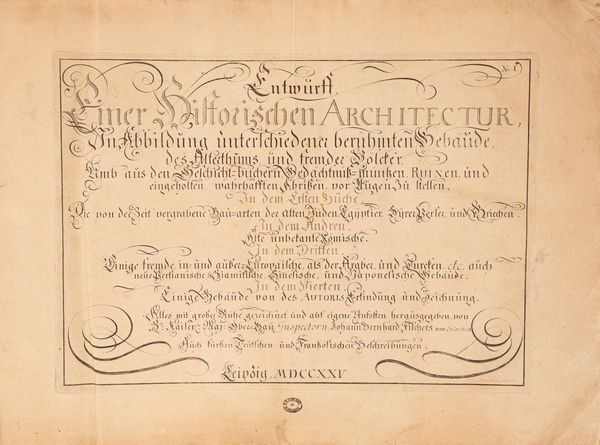 N. I.
Entwurff
Einer Historischen ARCHITECTUR,
In Abbildung unterschiedener berühmten Gebäude,
des Alterthums und fremder Völcker,
Umb aus den Geschicht-büchern, Gedächtnuß-müntzen, RUINEN, und
eingeholten wahrhafften Abrißen, vor Augen zu stellen.
In dem Ersten Buche.
Die von der Zeit vergrabene Bau-arten der alten Juden, Egyptier, Syrer, Perser, und Griechen.
In dem Andren.
Alte unbekante Römische.
In dem Dritten
Einige fremde in- und außer-Europäische, als der Araber, und Türcken, etc. auch
neue Persianische, Siamitische, Sinesische, und Japonesische Gebäude.
In dem Vierten.
Einige Gebäude von des AUTORIS Erfindung und Zeichnung.
Alles mit großer Mühe gezeichnet, und auf eigene Unkosten herausgegeben, von
Kaiserl. Maj. Ober-Bau Inspectorn, Johann Bernhard Fischers, von Erlachen
Auch kurtzen Teutschen und Frantzösischen Beschreibungen.
Leipzig, MDCCXXV